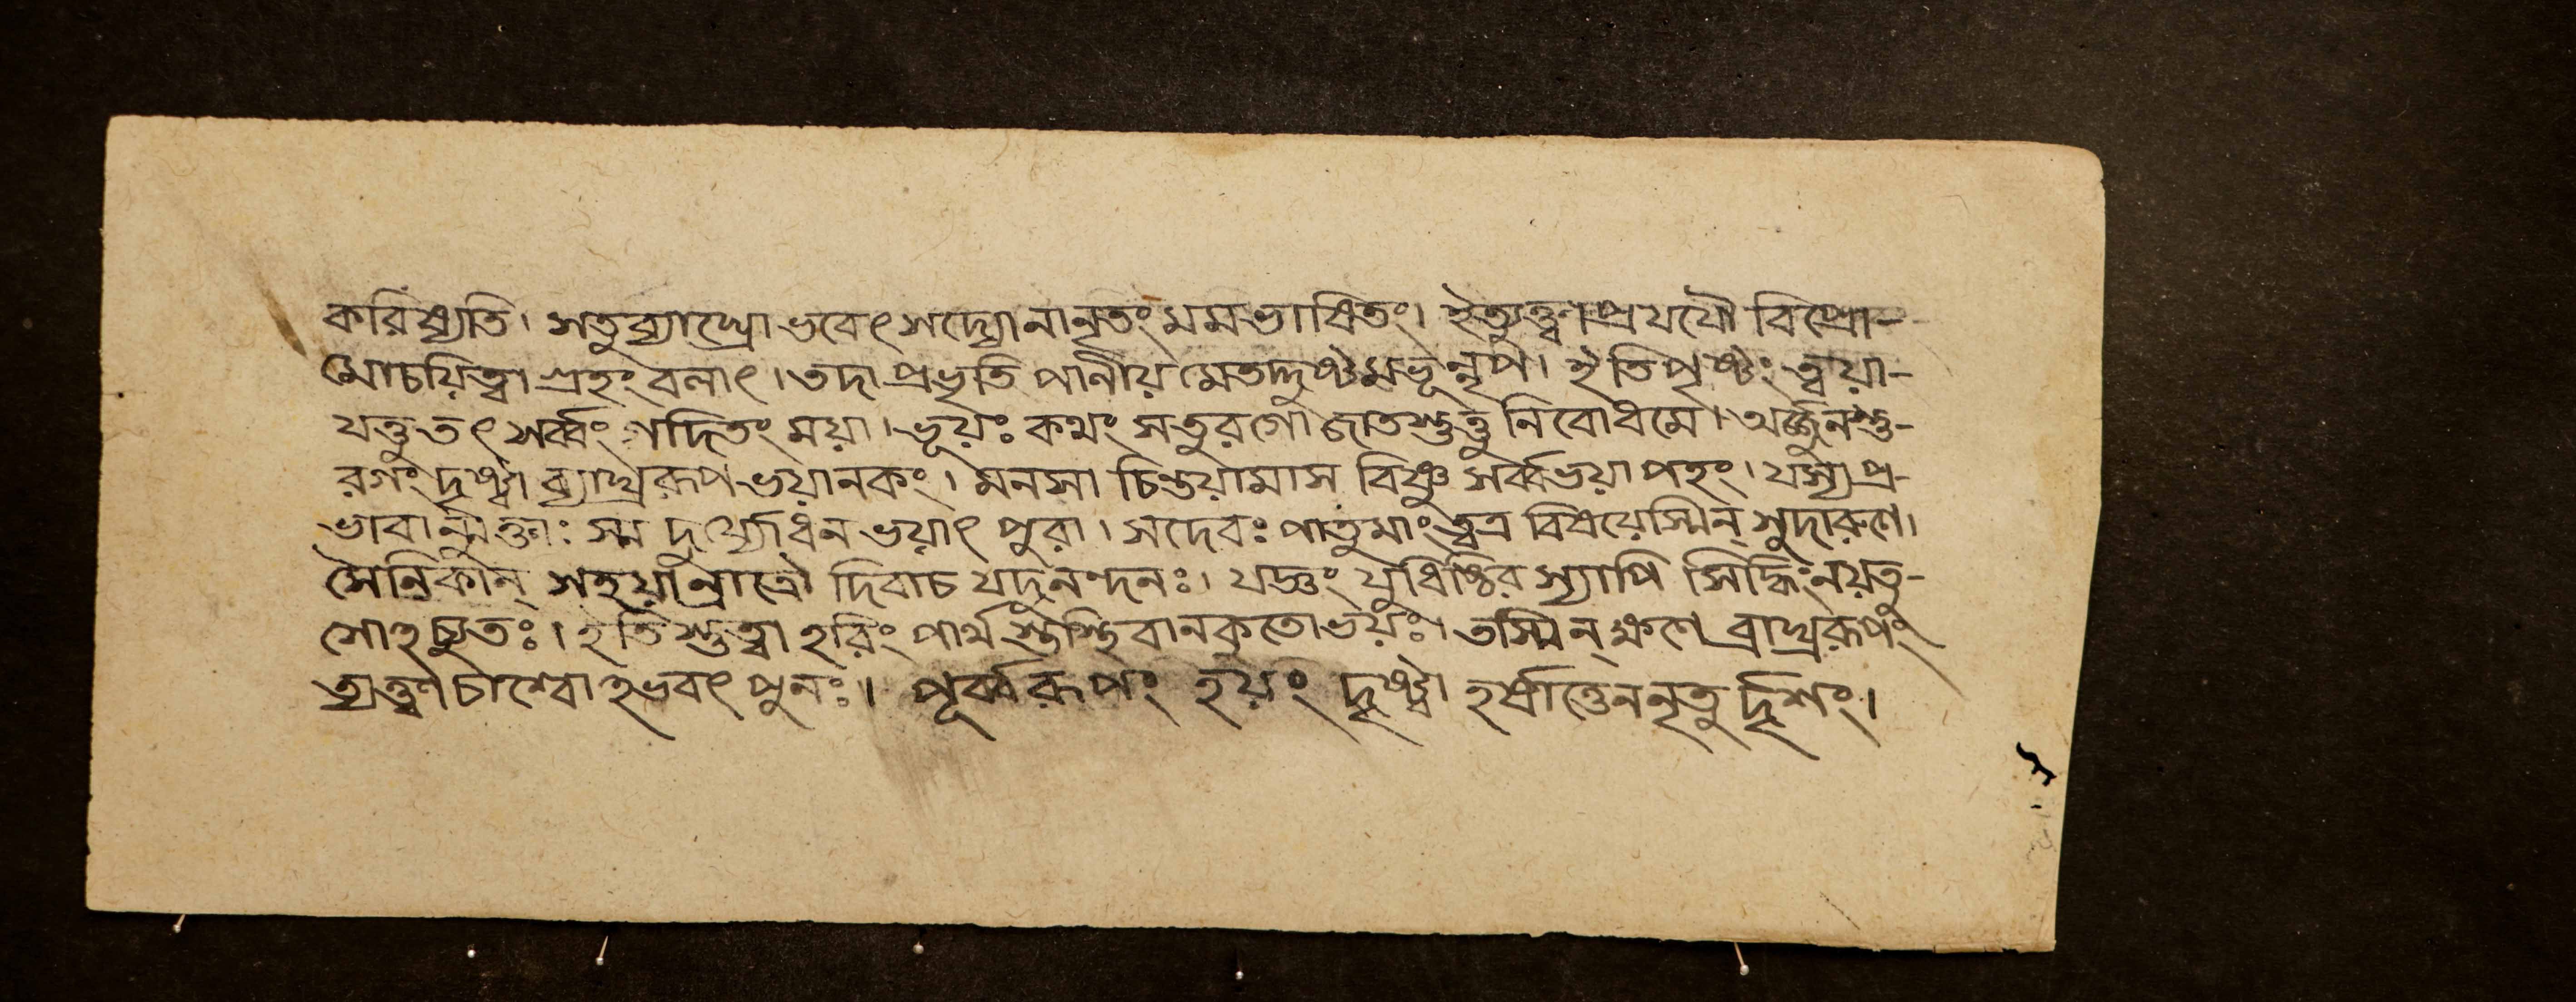 করিষ্যতি। সতুব্যাঘ্রো ভবেৎ সদ্যো নানৃতং মমভাষিতং। ইত্যুক্ত্বা প্রযযৌ বিপ্রো-
মোচয়িত্বা গ্রহং বলাৎ। তদা প্রভৃতি পানীয় মেতদ্দুষ্টমভূন্নৃপ। ইতিপৃষ্টং ত্বয়া-
যত্তু তৎ সর্ব্বং গদিতং ময়া। ভূয়ঃ কথং সতুরগো জাতশ্তত্তু নিবোধমে। অর্জ্জুনস্তু-
রগং দৃষ্ট্বা ব্যাঘ্ররূপ ভয়ানকং। মনসা চিন্তয়ামাস বিষ্ণু সর্ব্বভয়া পহং। যস্য প্র-
ভাবান্মুক্তাঃ স্ম দুর্য্যোধন ভয়াৎ পুরা। সদেবঃ পাতুমাং ত্বত্র বিষয়েস্মিন্ সুদারুণে।
সৈনিকান্ সহয়ান্রাত্রৌ দিবাচ যদুনন্দনঃ। যজ্ঞং যুধিষ্ঠির স্যাপি সিদ্ধিংনয়তু-
সোহচ্যুতঃ। ইতি স্তুত্বা হরিং পার্থ স্তস্থিবানকৃতোভয়ঃ। তস্মিন্ ক্ষণে ব্রাঘ্ররূপং
ত্যক্ত্বা চাশ্বোহভবৎ পুনঃ। পূর্ব্বরূপং হয়ং দৃষ্ট্বা হর্ষাত্তেননৃতু র্দৃশং।